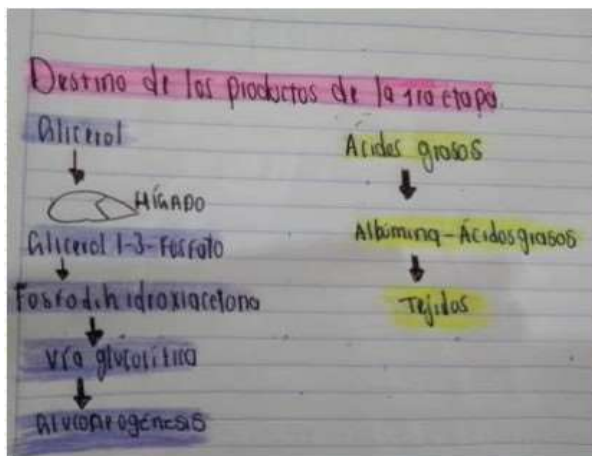 Destino de los productos de la 1ra etapa.
Glicerol
HÍGADO
Glicerol 1-3-Fosfato
Fosfodihidroxiacetona
Vía glucolítica
Gluconeogénesis
Ácidos grasos
Albúmina-Ácidos grasos
Tejidos